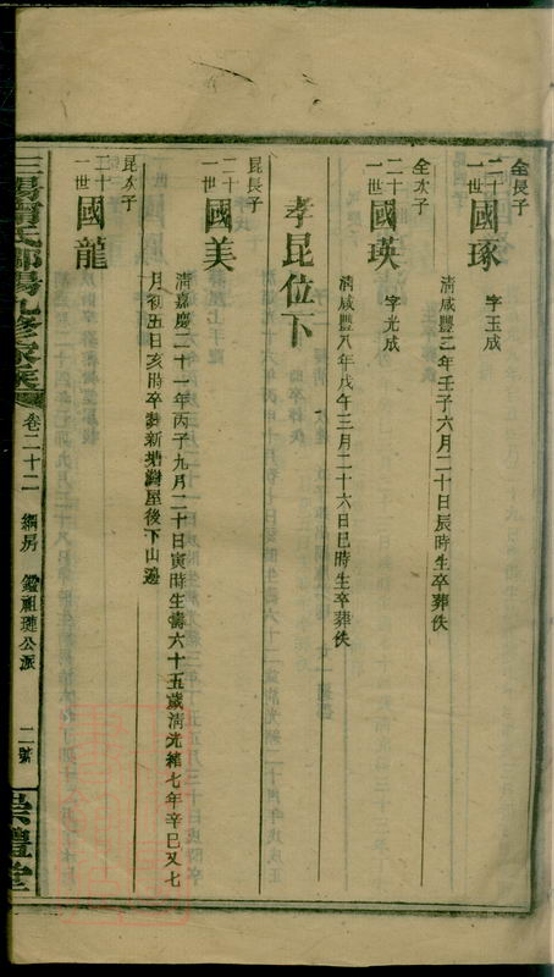 全長子
二十一世 國琢 字玉成
清咸豐二年壬子六月二十日辰時生卒葬佚
全次子
二十一世 國瑛 字光成
清咸豐八年戊午三月二十六日巳時生卒葬佚
孝昆位下
昆長子
二十一世 國美
清嘉慶二十一年丙子九月二十日寅時生壽六十五歲清光緒七年辛巳又七
月初五日亥時卒葬新塘灣屋後下山邊
昆次子
二十一世 國龍
卷二十二 綱房 鑑祖璉公派 二號
崇禮堂